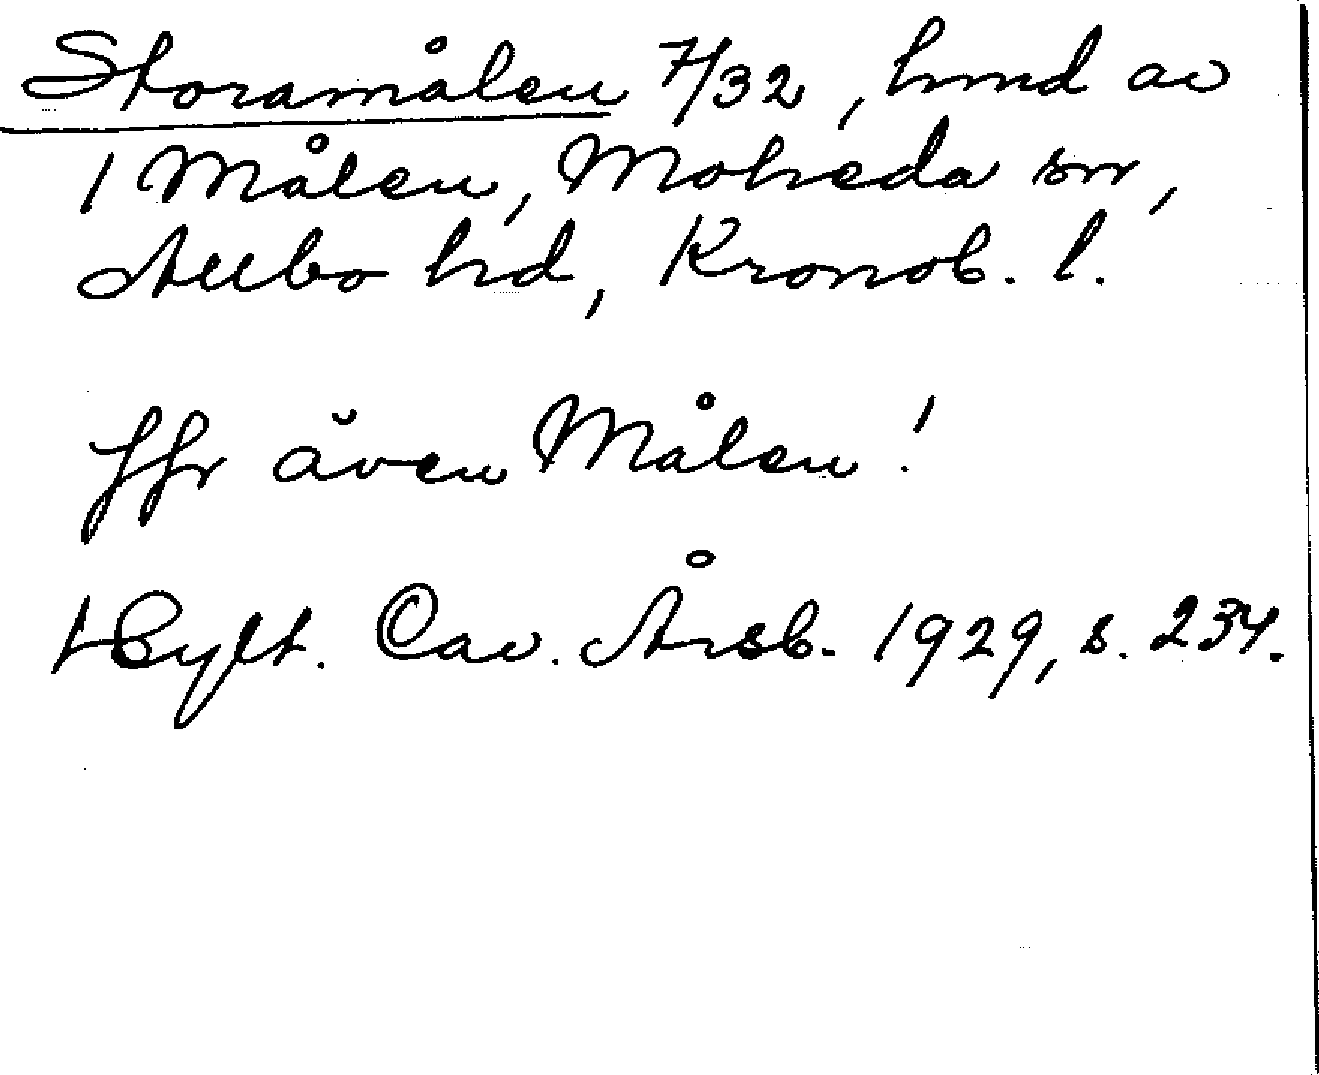 Storamålen 7/32, hmd av
1 Målen, Moheda sn,
Allbo hd, Kronob. l.
Jfr även Målen!
Hylt. Cav. Årsb. 1929, s. 234.